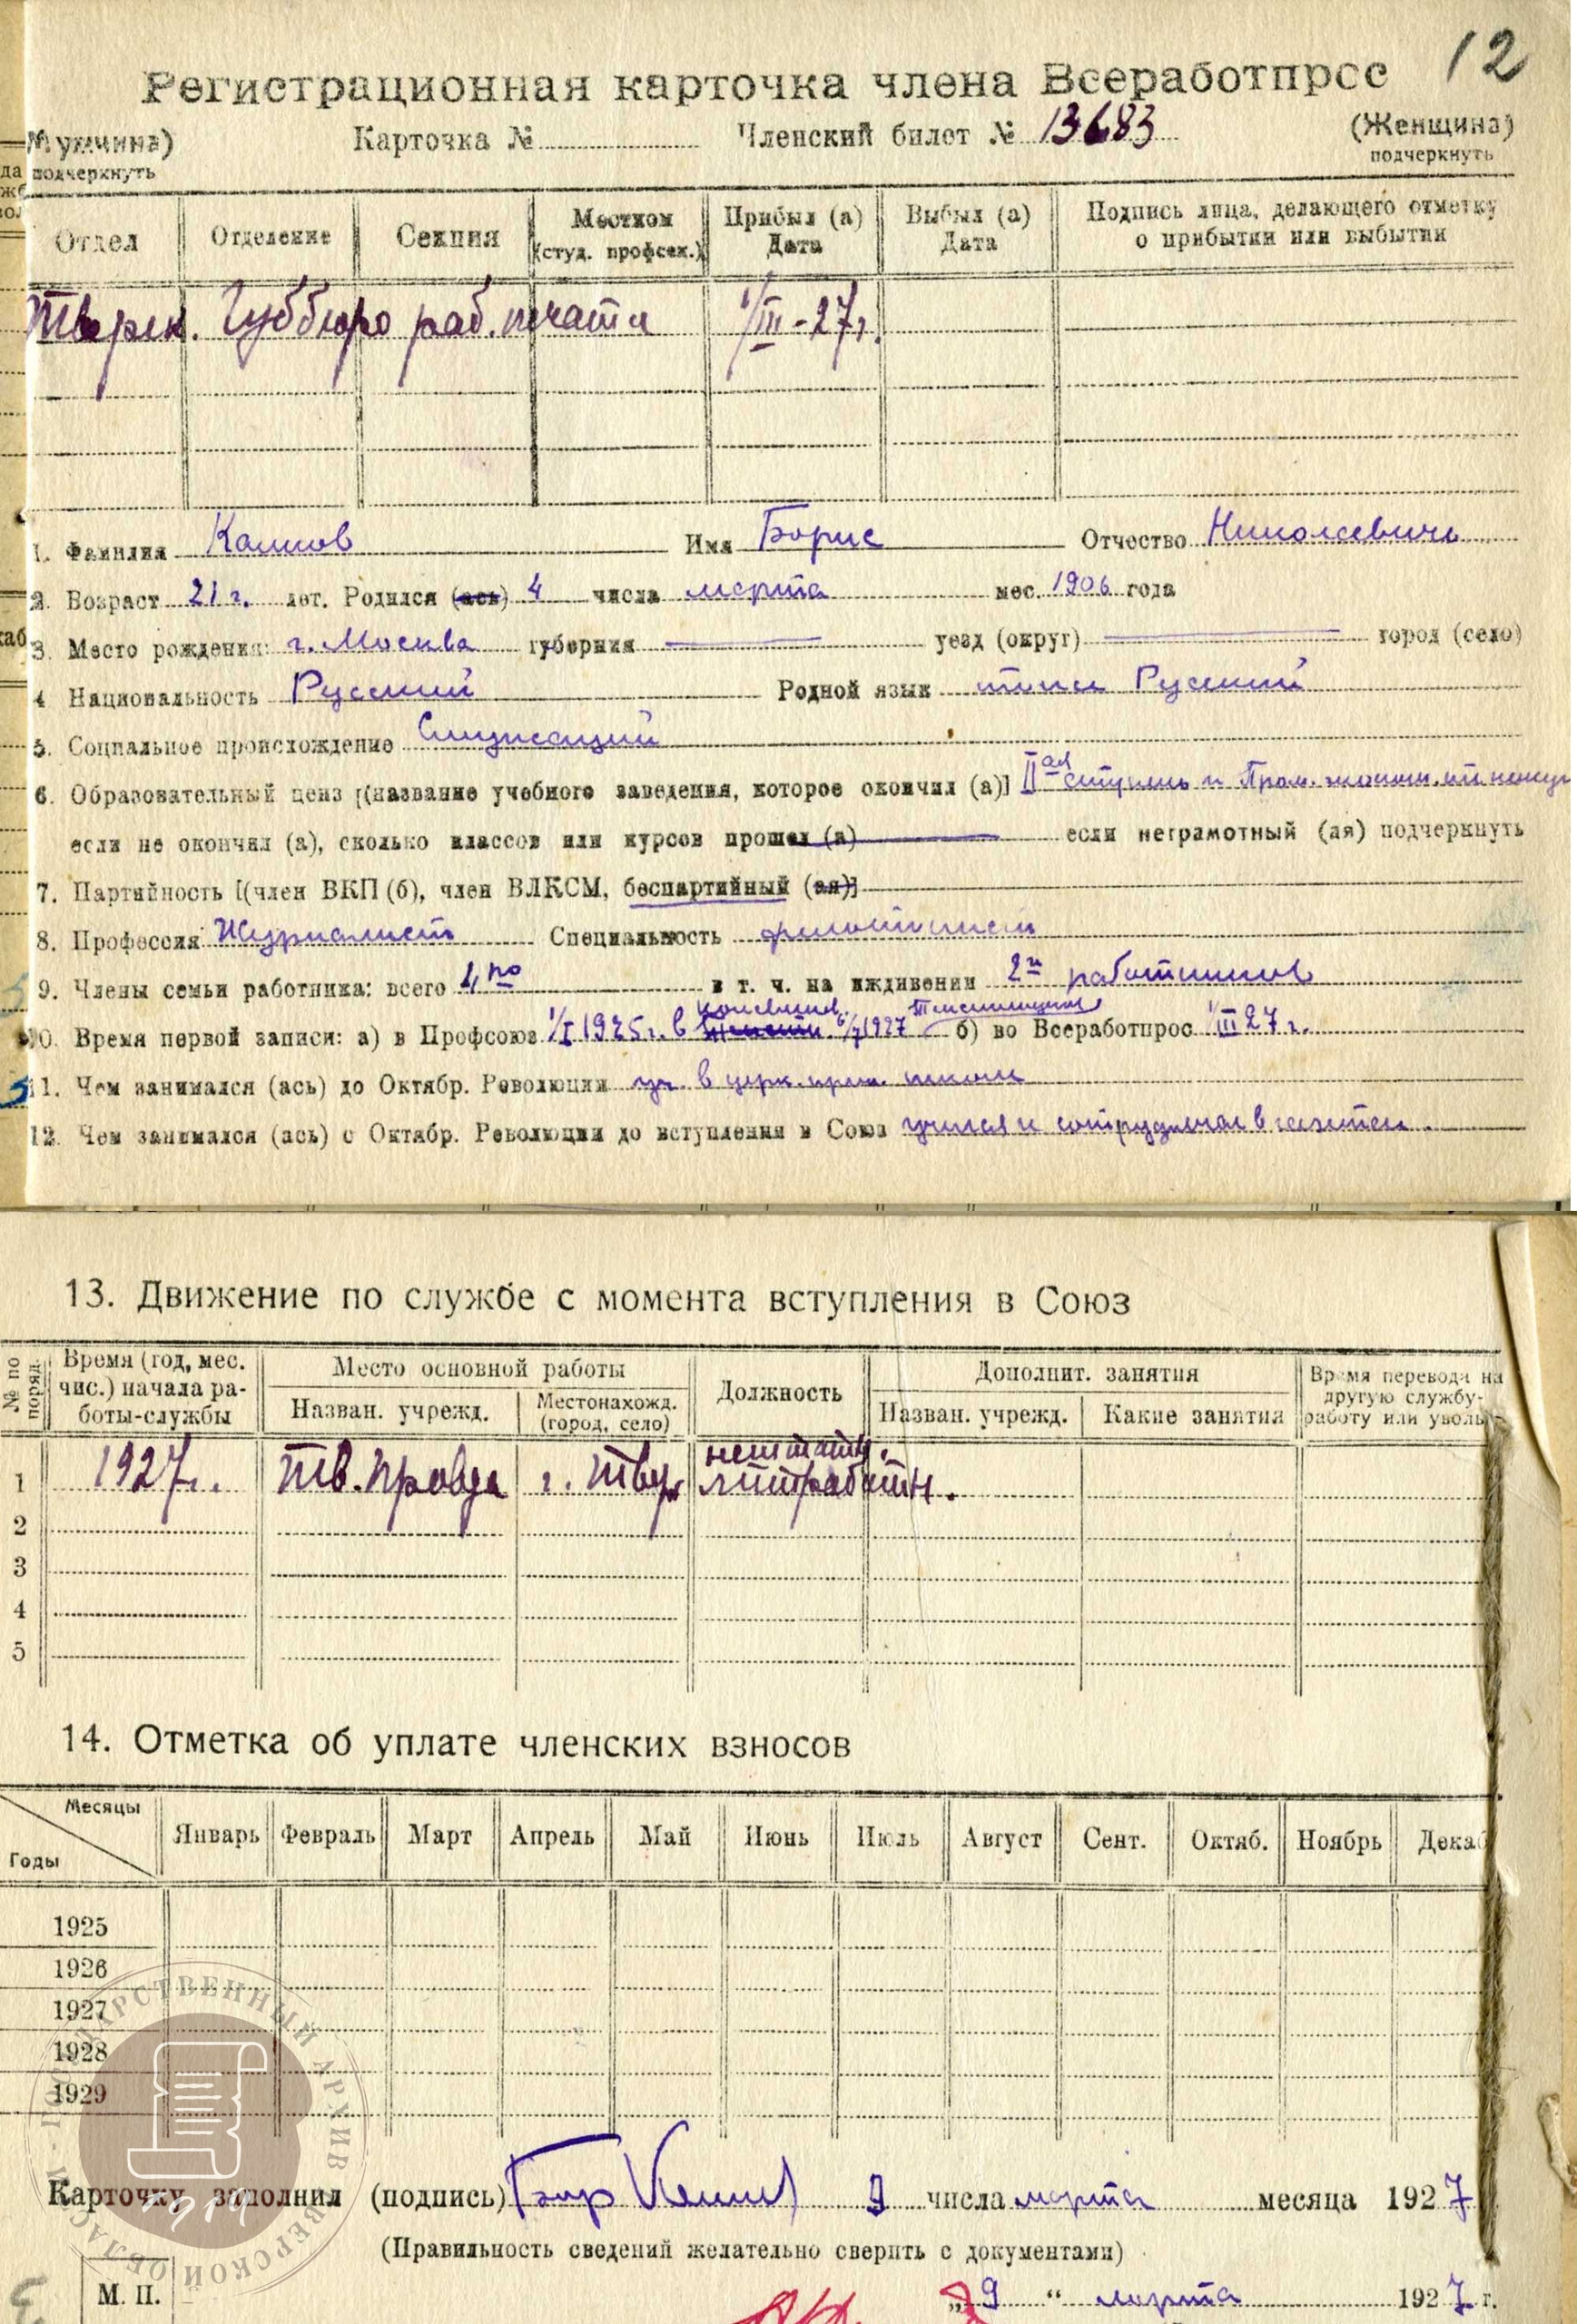 12
Регистрационная карточка члена Всеработпрос
Мужчина) Карточка № Членский билет № 13683 (Женщина)
подчеркнуть подчеркнуть
Отдел Отделение Секция Местком (студ. профсек.) Прибыл (а) Дата Выбыл (а) Дата Подпись лица, делающего отметку о прибытии или выбытии
Тверск. Губбюро раб. печати 1/III-27г.
1. Фамилия Имя Борис Отчество Николаевич
2. Возраст 21 г. лет. Родился (ась) 4 числа марта мес. 1906 года
3. Место рождения: г. Москва губерния уезд (округ) город (село)
4 Национальность Русский Родной язык Русский
5. Социальное происхождение Служащий
6. Образовательный ценз [(название учебного заведения, которое окончил (а)] II ая ступень и Пром. эконом.
если не окончил (а), сколько классов или курсов прошел (а) если неграмотный (ая) подчеркнуть
7. Партийность [(член ВКП(б), член ВЛКСМ, беспартийный (ая)]
8. Профессия Журналист Специальность
9. Члены семьи работника: всего 4 в т. ч. на иждивении 2 работников
10. Время первой записи: а) в Профсоюз 1/I 1925 г. в 1927 б) во Всеработпрос 1/III 27 г.
11. Чем занимался (ась) до Октябр. Революции уч. в церк. прих. школе
12. Чем занимался (ась) с Октябр. Революции до вступления в Союз учился и сотрудничал в газетах.
13. Движение по службе с момента вступления в Союз
№ по поряд. Время (год, мес. чис.) начала работы-службы Место основной работы Должность Дополнит. занятия Время перевода на другую службу-работу или уволь
Назван. учрежд. Местонахожд. (город, село) Назван. учрежд. Какие занятия
1 1927 г. Тв. Правда г. Тверь нештатн. литработн.
2
3
4
5
14. Отметка об уплате членских взносов
Месяцы Годы Январь Февраль Март Апрель Май Июнь Июль Август Сент. Октяб. Ноябрь Декаб
1925
1926
1927
1928
1929
ГОСУДАРСТВЕННЫЙ АРХИВ ТВЕРСКОЙ ОБЛАСТИ
1919
Карточку заполнил (подпись) 9 числа марта месяца 1927
(Правильность сведений желательно сверить с документами)
М. П. „9“ марта 1927 г.